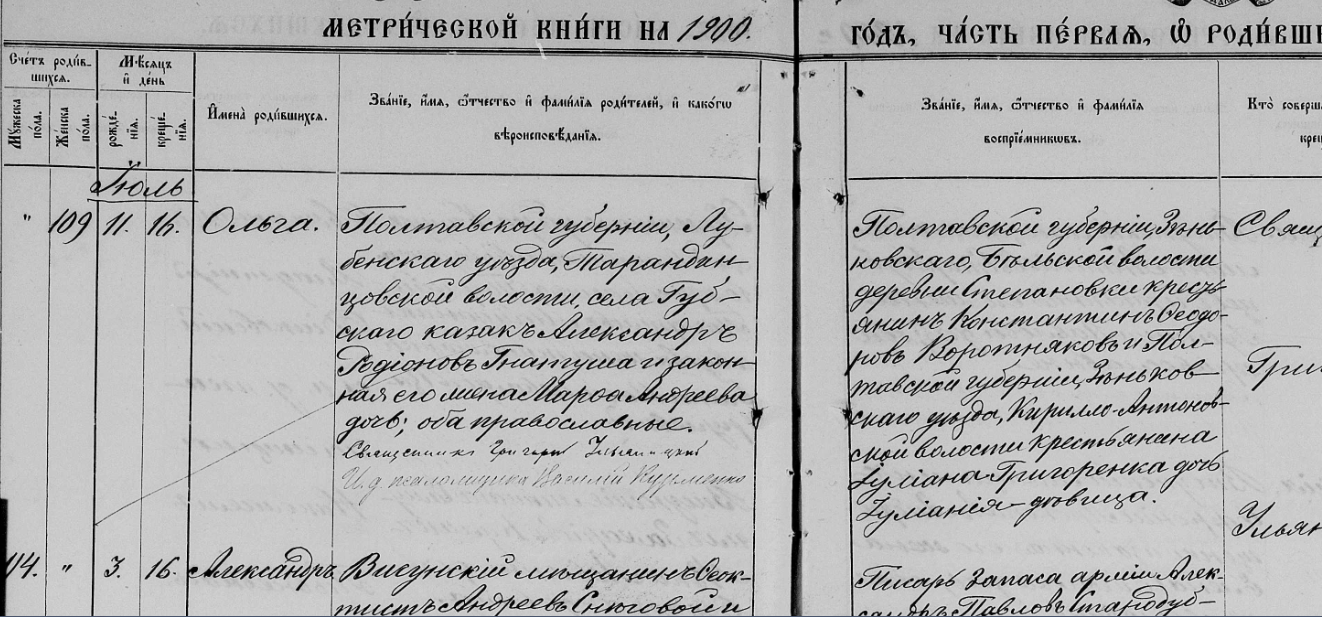 МЕТРИ́ЧЕСКОЙ КНИ́ГИ НА 1900.
ГО́ДЪ, ЧА́СТЬ ПЕ́РВАЯ, Ѽ РОДИ́ВШИ
Сче́тъ роди́в-
шихся.
Му́жеска
по́ла.
Же́нска
по́ла.
Мѣ́сяцъ
и҆ де́нь
рожде́-
нїя.
креще́-
нїя.
И҆мена̀ роди́вшихся.
Зва́нїе, и҆́мя, ѻ҆́тчество и҆ фами́лїя роди́телей, и҆ како́гѡ
вѣроисповѣ́данїя.
Зва́нїе, и҆́мя, ѻ҆́тчество и҆ фами́лїя
воспрїе́мниковъ.
Кто̀ соверш
крещ
Іюль
" 109 11. 16. Ольга.
Полтавской губерніи, Лу-
бенскаго уѣзда, Тарандин
цовской волости, села Губ-
скаго казакъ Александръ
Родіоновъ Гнатуша и закон-
ная его жена Марѳа Андреева
дочь; оба православные.
Священникъ Григорій Ильяшенко
И. д. псаломщика Василій Кузменко
Полтавской губерніи, Зѣнь-
ковскаго, Бѣльской волости
деревни Степановки кресть
янинъ Константинъ Ѳеодо-
ровъ Воротняковъ и Пол-
тавской губерніи, Зѣньков-
скаго уѣзда, Кирилло-Антонов-
ской волости крестьянина
Іуліана Григоренка дочь
Іуліанія – дѣвица.
Свящ
Григ
Ильян
104. " 3. 16. Александръ
Висунскій мѣщанинъ Ѳеок-
тистъ Андреевъ Снѣговой и
Писарь запаса арміи Алек-
сандръ Павловъ Стародуб-